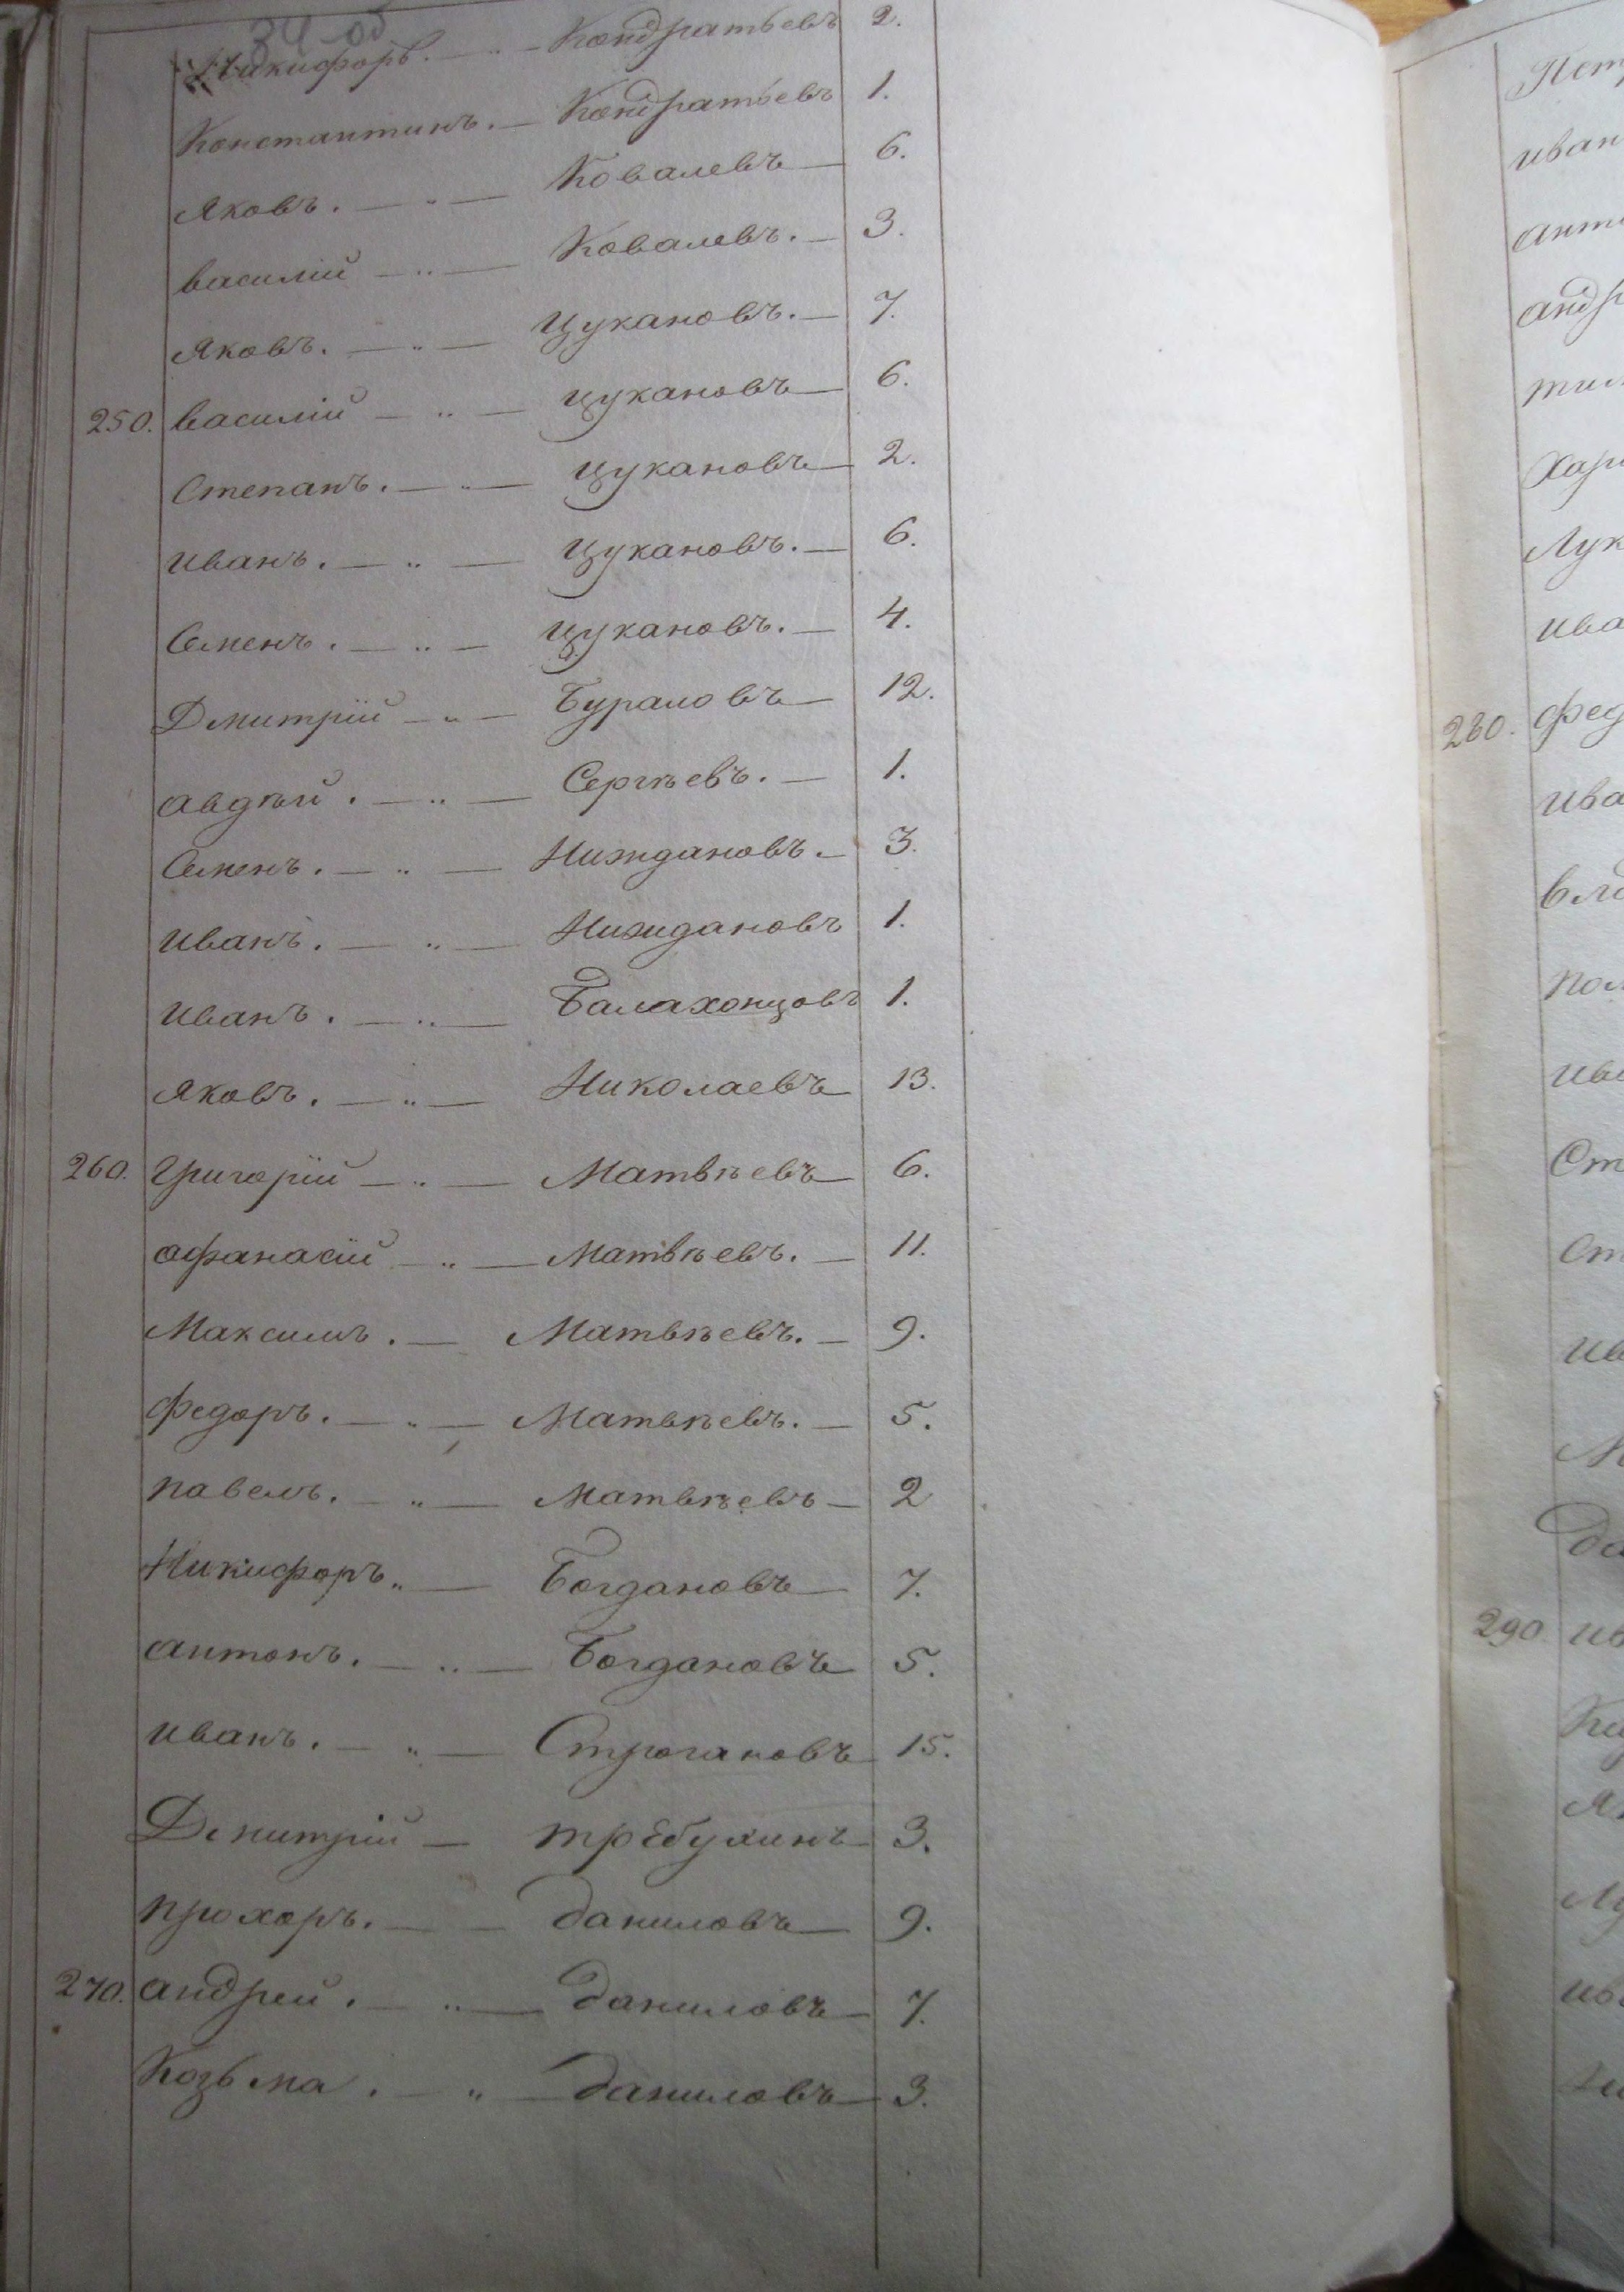 34 об
Никифоръ. — „ — Кондратьевъ 2.
Константинъ. — Кондратьевъ 1.
Яковъ. — „ — Ковалевъ — 6.
Василій — „ — Ковалевъ. — 3.
Яковъ. — „ — Цукановъ. — 7.
250. Василій — „ — Цукановъ — 6.
Степанъ. — „ — Цукановъ — 2.
Иванъ. — „ — Цукановъ. — 6.
Семенъ. — „ — Цукановъ. — 4.
Дмитрій — „ — Бураловъ — 12.
Авдѣй. — „ — Сергѣевъ. — 1.
Семенъ. — „ — Ниждановъ. — 3.
Иванъ. — „ — Ниждановъ 1.
Иванъ. — „ — Балахонцовъ 1.
Яковъ. — „ — Николаевъ 13.
260. Григорій — „ — Матвѣевъ — 6.
Афанасій — „ — Матвѣевъ. — 11.
Максимъ. — Матвѣевъ. — 9.
Федоръ. — „ — Матвѣевъ. — 5.
Павелъ. — „ — Матвѣевъ — 2
Никифоръ „ — Богдановъ — 7.
Антонъ. — „ — Богдановъ 5.
Иванъ. — „ — Строгановъ 15.
Дмитрій — Требухинъ 3.
Прохоръ. — — Даниловъ — 9.
270. Андрей. — „ — Даниловъ — 7.
Козьма. — „ — Даниловъ — 3.
280.
290.